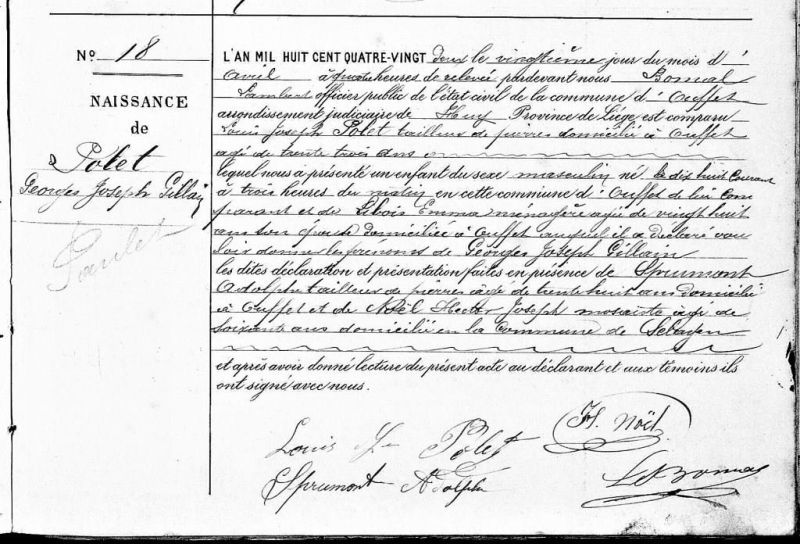 N° 18
NAISSANCE
de
Polet
Georges Joseph Gillain
L'AN MIL HUIT CENT QUATRE-VINGT deux le vingtième jour du mois d'
avril à quatre heures de relevée pardevant nous Bonnal
Lambert officier public de l'état civil de la commune d'Ouffet
arrondissement judiciaire de Huy Province de Liége, est comparu
Louis Joseph Polet tailleur de pierres domicilié à Ouffet
agé de trente trois ans
lequel nous a présenté un enfant du sexe masculin né le dix huit courant
à trois heures du matin en cette commune d'Ouffet de lui Com
parant et de Libois Emma ménagère agée de vingt huit
ans son épouse domiciliée à Ouffet auquel il a déclaré vou
loir donner les prénoms de Georges Joseph Gillain
les dites déclaration et présentation faites en présence de Sprumont
Adolphe tailleur de pierres agé de trente huit ans domicilié
à Ouffet et de Noël Hector Joseph agé de
soixante ans domicilié en la commune de
et après avoir donné lecture du présent acte au déclarant et aux témoins ils
ont signé avec nous.
H. Noël
Louis Polet
Sprumont Adolphe